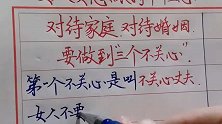 对待家庭.对待婚姻.
要做到"三个不关心"
第一个不关心.是叫不关心丈夫.
女人不要